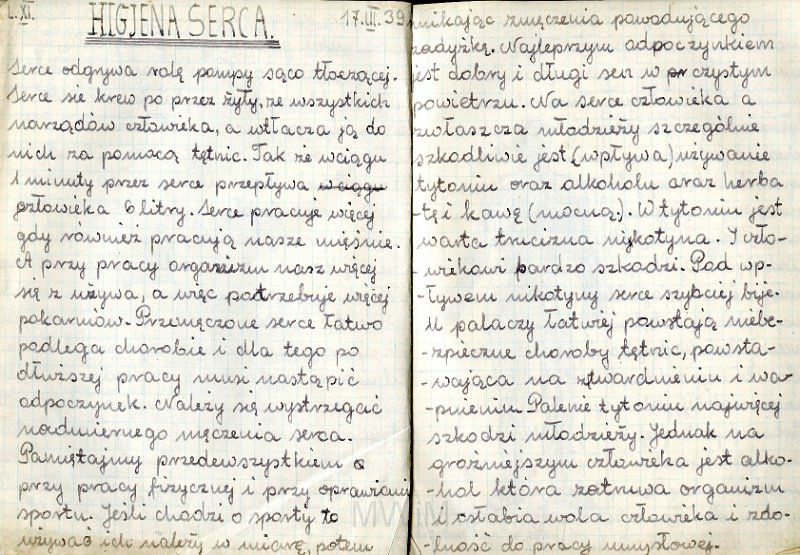 L. XI.
HIGJENA SERCA.
17.III.39
Serce odgrywa rolę pompy sąco tłoczącej.
Serce sie krew po przez żyły, ze wszystkich
narządów człowieka, a wtłacza ją do
nich za pomocą tętnic. Tak że wciągu
1 minuty przez serce przepływa wciągu
człowieka 6 litry. Serce pracuje więcej
gdy również pracują nasze mięśnie.
A przy pracy organizm nasz więcej
się z używa, a więc potrzebuje więcej
pokarmów. Przemęczone serce łatwo
podlega chorobie i dla tego po
dłuższej pracy musi nastąpić
odpoczynek. Należy się wystrzegać
nadmiernego męczenia serca.
Pamiętajmy przedewszystkiem o
przy pracy fizycznej i przy oprawianiu
sportu. Jeśli chodzi o sporty to
używać ich należy w miarę, potem
unikając zmęczenia powodującego
zadyżkę. Najleprzym odpoczynkiem
jest dobry i długi sen w przystym
powietrzu. Na serce człowieka a
zwłaszcza młodzieży szczególnie
szkodliwie jest (wpływa) używanie
tytoniu oraz alkoholu oraz herba
-tę i kawę (mocną). W tytoniu jest
warta trucizna nikotyna. I czło-
-wiekowi bardzo szkodzi. Pod wp-
-ływem nikotyny serce szybciej bije.
U palaczy łatwiej powstają niebe-
-zpieczne choroby tętnic, powsta-
-wająca na stwardnieniu i wa-
-pnieniu. Palenie tytoniu najwięcej
szkodzi młodzieży. Jednak na
groźniejszym człowieka jest alko-
-hol która zatruwa organizm
i osłabia wola człowieka i zdo-
-lność do pracy umysłowej.
MWiM